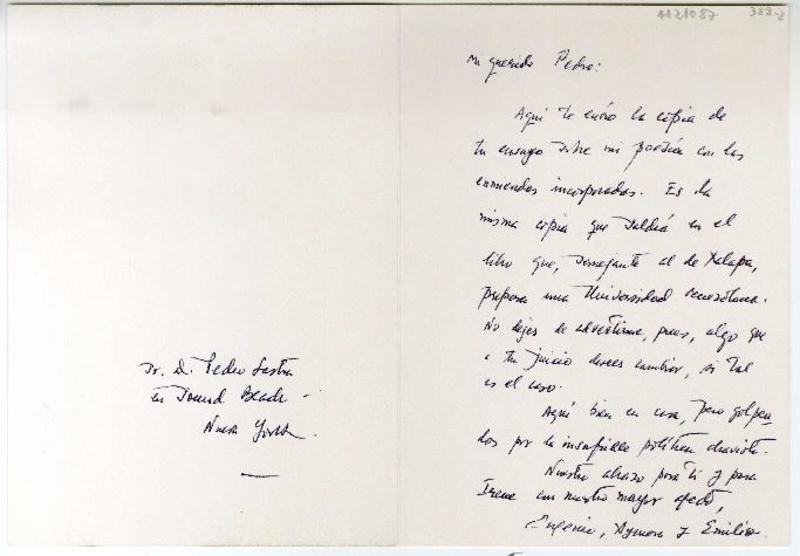 1121087 388-2
Mi querido Pedro:
Aquí te envío la copia de
tu ensayo sobre mi poesía con las
enmiendas incorporadas. Es la
misma copia que saldrá en el
libro que, semejante al de Xalapa,
prepara una Universidad venezolana.
No dejes de advertirme, pues, algo que
a tu juicio desees cambiar, si tal
es el caso.
Aquí bien en casa, pero golpea-
dos por la insufrible política chavista.
Nuestro abrazo para ti y para
Irene con nuestro mayor afecto,
Eugenio, Aymara y Emilio.
Sr. D. Pedro Lastra
en Sound Beach -
Nueva York.